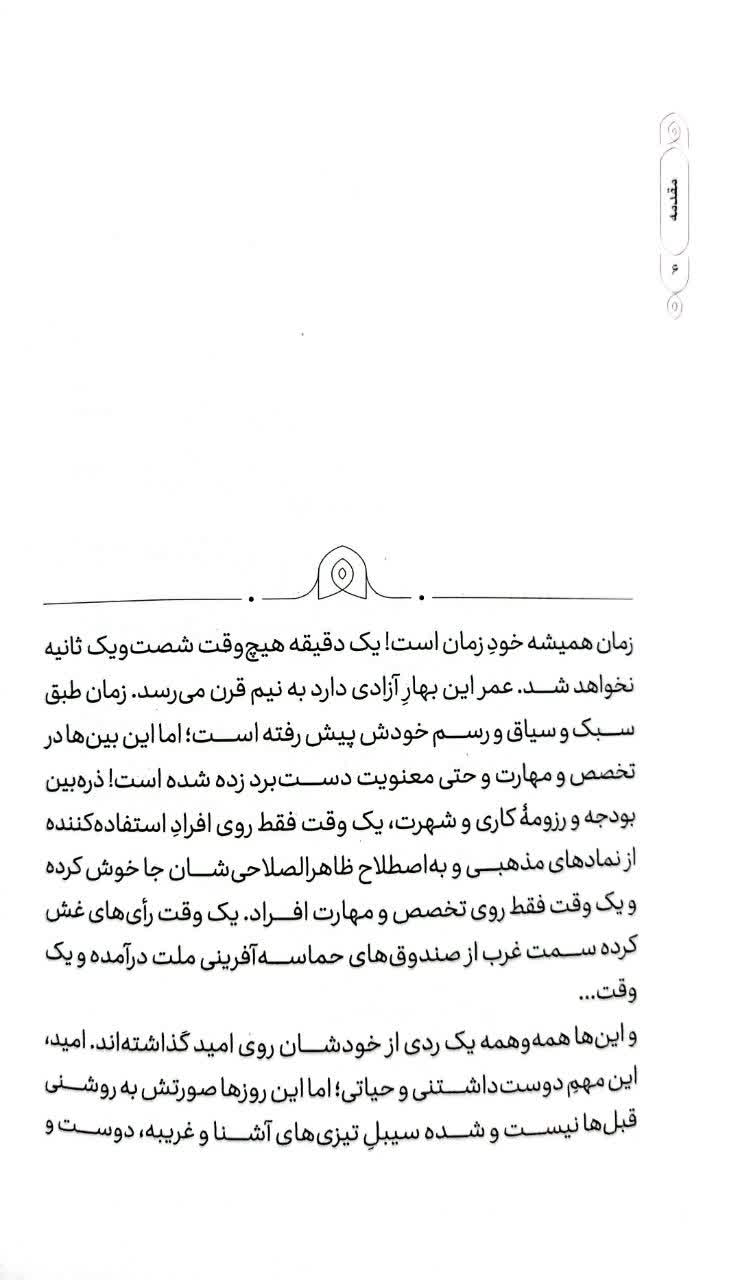 مقدمه
۶
زمان همیشه خودِ زمان است! یک دقیقه هیچ‌وقت شصت‌ویک ثانیه
نخواهد شد. عمر این بهارِ آزادی دارد به نیم قرن می‌رسد. زمان طبق
سبک و سیاق و رسم خودش پیش رفته است؛ اما این بین‌ها در
تخصص و مهارت و حتی معنویت دست‌برد زده شده است! ذره‌بین
بودجه و رزومهٔ کاری و شهرت، یک وقت فقط روی افرادِ استفاده‌کننده
از نمادهای مذهبی و به‌اصطلاح ظاهرالصلاحی‌شان جا خوش کرده
و یک وقت فقط روی تخصص و مهارت افراد. یک وقت رأی‌های غش
کرده سمت غرب از صندوق‌های حماسه‌آفرینی ملت درآمده و یک
وقت...
و این‌ها همه‌وهمه یک ردی از خودشان روی امید گذاشته‌اند. امید،
این مهمِ دوست‌داشتنی و حیاتی؛ اما این روزها صورتش به روشنی
قبل‌ها نیست و شده سیبلِ تیزی‌های آشنا و غریبه، دوست و